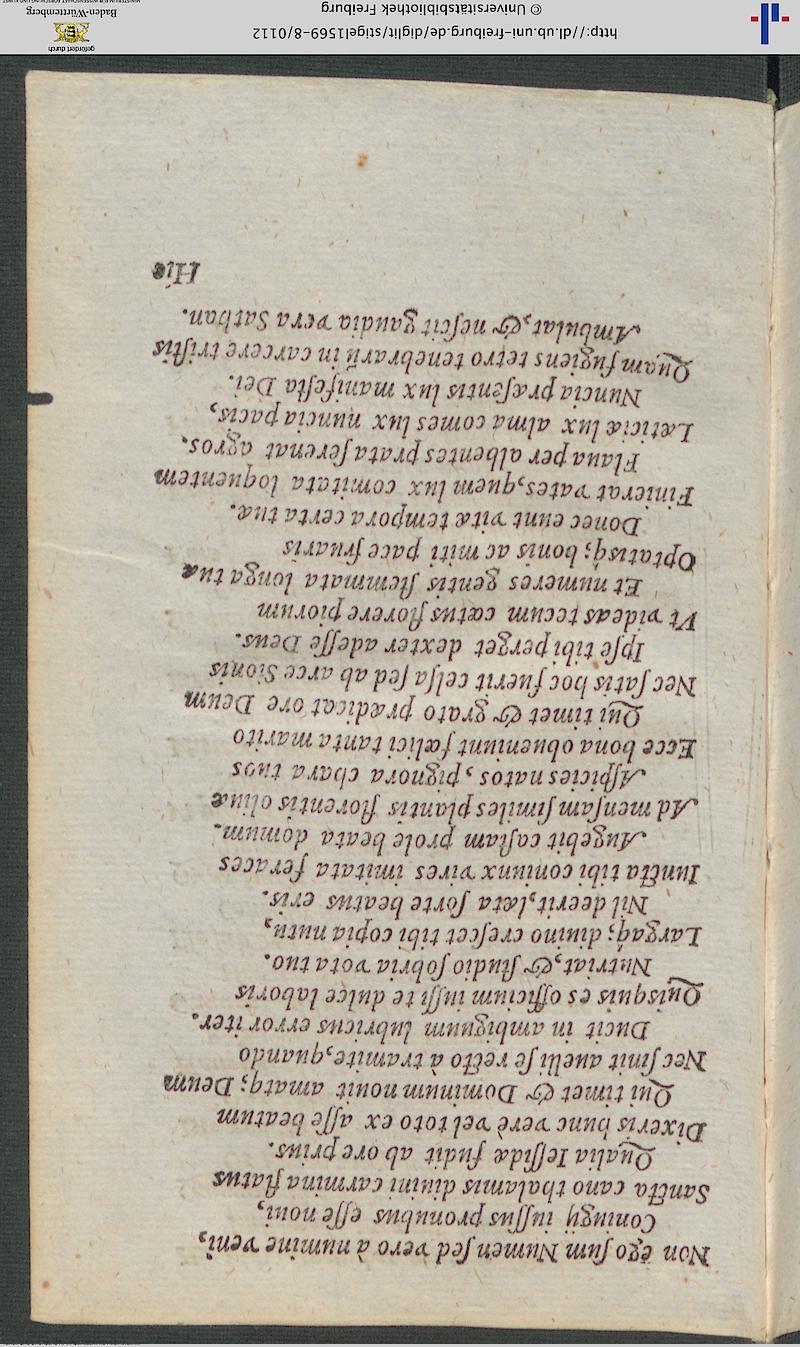 Non ego sum Numen sed vero à numine veni,
Coniugij iussus pronubus esse noui,
Sancta cano thalamis diuini carmina flatus
Qualia Iessidæ fudit ab ore prius.
Dixeris hunc verè vel toto ex asse beatum
Qui timet & Dominum nouit amatq; Deum
Nec sinit auelli se recto à tramite, quando
Ducit in ambiguum lubricus error iter.
Quisquis es officium iussi te dulce laboris
Nutriat, & studio sobria vota tuo.
Largaq; diuino crescet tibi copia nutu,
Nil deerit, læta sorte beatus eris.
Iuncta tibi coniunx vires imitata feraces
Augebit castam prole beata domum.
Ad mensam similes plantis florentis oliuæ
Aspicies natos, pignora chara tuos
Ecce bona obueniunt fœlici tanta marito
Qui timet & grato prædicat ore Deum
Nec satis hoc fuerit celsa sed ab arce Sionis
Ipse tibi perget dexter adesse Deus.
Vt videas tecum cœtus florere piorum
Et numeres gentis stemmata longa tuæ
Optatisq; bonis ac miti pace fruaris
Donec eunt vitæ tempora certa tuæ.
Finierat vates, quem lux comitata loquentem
Flaua per albentes prata serenat agros.
Læticiæ lux alma comes lux nuncia pacis,
Nuncia præsentis lux manifesta Dei.
Quam fugiens tetro tenebrarũ in carcere tristis
Ambulat, & nescit gaudia vera Sathan.
Hic
http://dl.ub.uni-freiburg.de/diglit/stigel1569-8/0112
© Universitätsbibliothek Freiburg
gefördert durch
Baden-Württemberg